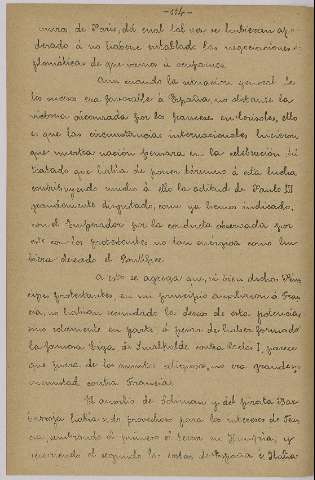 -114-
muros de París, del cual tal vez se hubieran apo-
derado á no haberse entablado las negociaciones di-
plomáticas de que vamos á ocuparnos.
Aun cuando la situación general de
las cosas era favorable á España, no obstante la
victoria alcanzada por los franceses en Cerisoles, ello
es que las circunstancias internacionales hicieron
que nuestra nación pensara en la celebración del
tratado que había de poner término á esta lucha
contribuyendo mucho á ello la actitud de Paulo III
grandemente disgustado, como ya hemos indicado,
con el Emperador por la conducta observada por
este con los protestantes no tan enérgica como hu-
biera deseado el Pontífice.
A esto se agrega que, si bien dichos Prín-
cipes protestantes, en un principio auxiliaron á Fran-
cia, no habían secundado los deseos de esta potencia
sino solamente en parte, á pesar de haber formado
la famosa Liga de Smalkalda contra Carlos I, parece
que fuera de los asuntos religiosos, no era grande su
enemistad contra
El auxilio de Soliman y del pirata Bar-
barroja habían sido provechoso para los intereses de Fran-
cia, sembrando el primero el terror en Hungría, y
recorriendo el segundo las costas de España é Italia